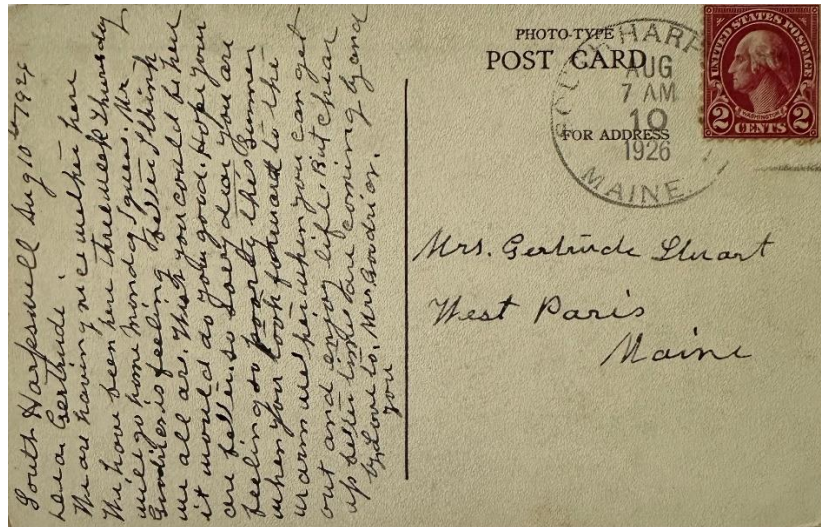 South Harpswell Aug 10th 1926
Dear Gertrude
We are having nice wether here
We have been here three week Thursday
will go home Monday I guess. Mr
is feeling better I think
we all are. Wish you could be here
it would do you good. Hope you
are better. so sorry dear you are
feeling so poorly this summer
when you look forward to the
warm wether when you can get
out and enjoy life. But chear
up better times are coming by and
by love to. Mrs.
you
PHOTO-TYPE
POST CARD
FOR ADDRESS
SOUTH HARP
AUG
7 AM
10
1926
MAINE.
UNITED STATES POSTAGE
WASHINGTON
2 CENTS 2
Mrs. Gertrude Stuart
West Paris
Maine